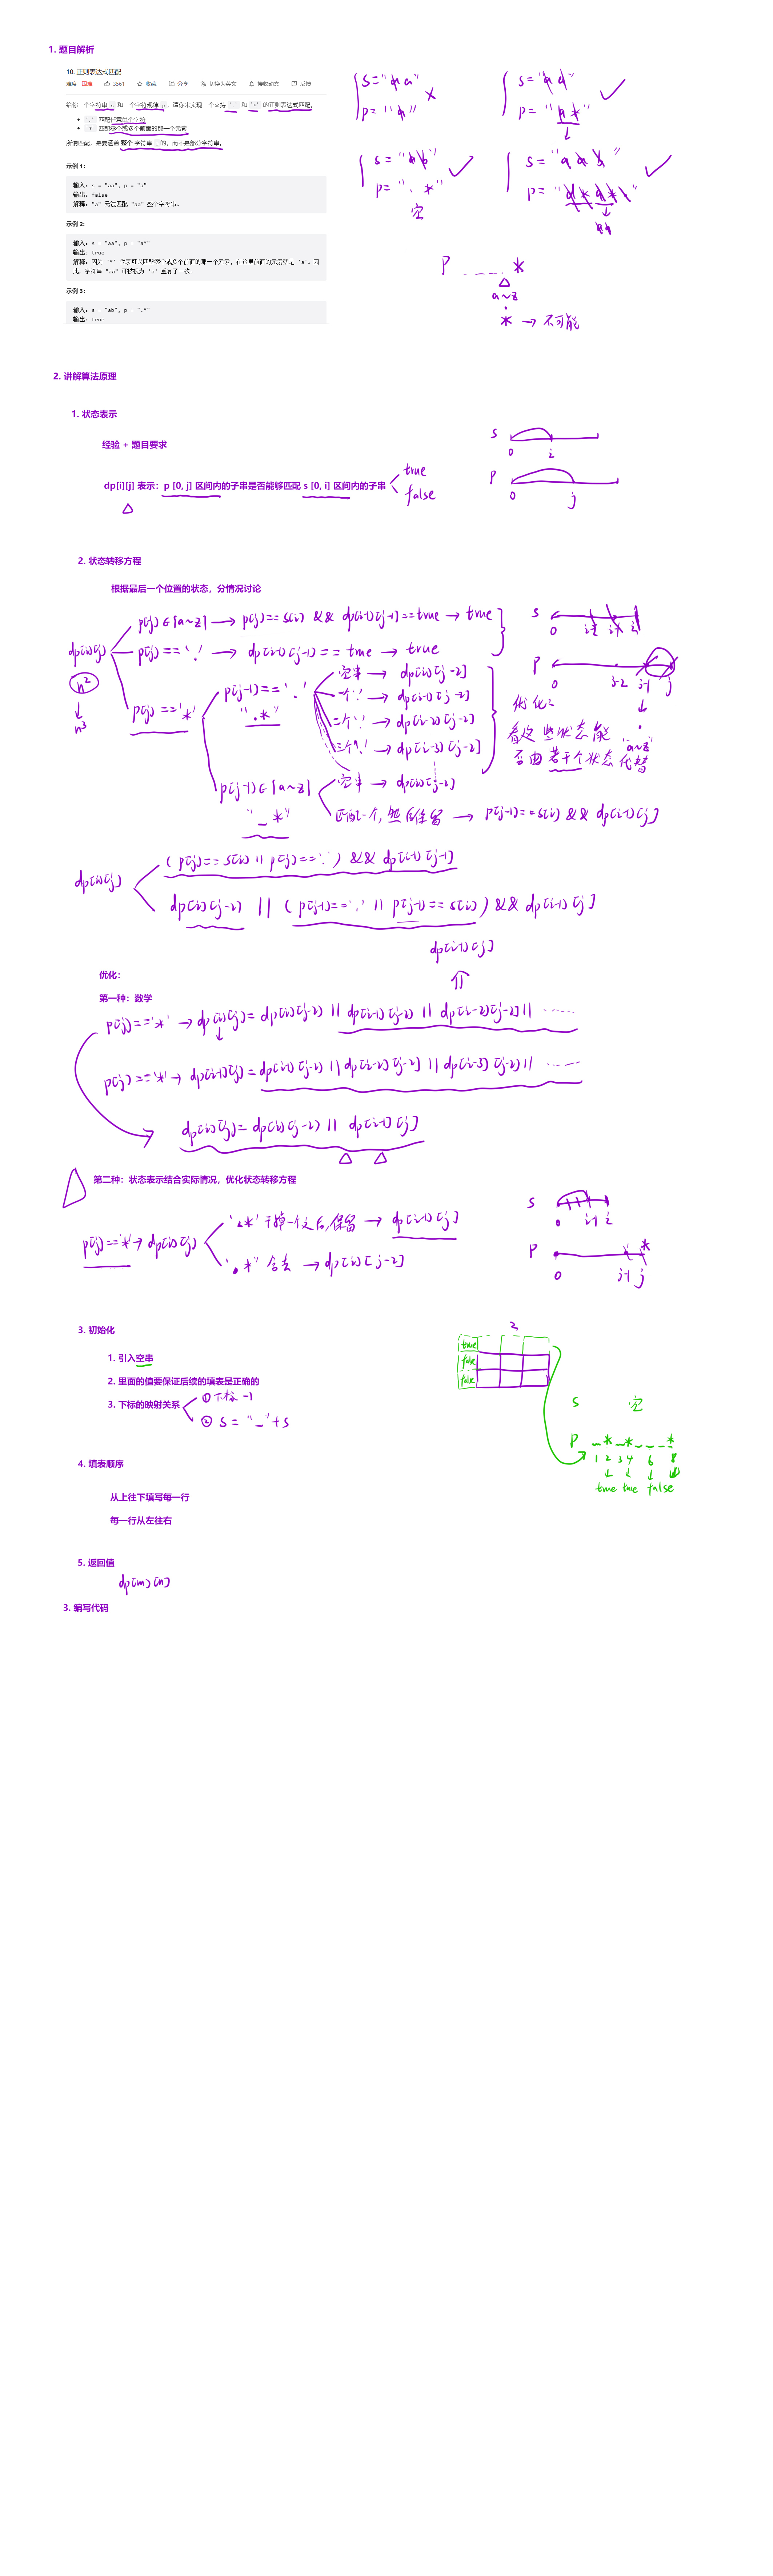 1. 题目解析
10. 正则表达式匹配
难度 困难 3561 收藏 分享 切换为英文 接收动态 反馈
给你一个字符串 s 和一个字符规律 p，请你来实现一个支持 '.' 和 '*' 的正则表达式匹配。
'.' 匹配任意单个字符
'*' 匹配零个或多个前面的那一个元素
所谓匹配，是要涵盖 整个 字符串 s的，而不是部分字符串。
示例 1：
输入：s = "aa", p = "a"
输出：false
解释："a" 无法匹配 "aa" 整个字符串。
示例 2:
输入：s = "aa", p = "a*"
输出：true
解释：因为 '*' 代表可以匹配零个或多个前面的那一个元素, 在这里前面的元素就是 'a'。因
此，字符串 "aa" 可被视为 'a' 重复了一次。
示例 3：
输入：s = "ab", p = ".*"
输出：true
s="aa"
p="a"
s="aa"
p="a*"
s="ab"
p=".*"
空
s="aab"
p="d*a*."
aa
p ____*
a~z
.
* → 不可能
2. 讲解算法原理
1. 状态表示
经验 + 题目要求
dp[i][j] 表示：p [0, j] 区间内的子串是否能够匹配 s [0, i] 区间内的子串
true
false
s
0 i
p
0 j
2. 状态转移方程
根据最后一个位置的状态，分情况讨论
dp[i][j]
n²
n³
p[j]∈[a~z] → p[j]==s[i] && dp[i-1][j-1]==true → true
p[j]=='.' → dp[i-1][j-1]==true → true
p[j]=='*'
p[j-1]=='.'
".*"
空串 → dp[i][j-2]
一个'.' → dp[i-1][j-2]
二个'.' → dp[i-2][j-2]
三个'.' → dp[i-3][j-2]
p[j-1]∈[a~z]
"_*"
空串 → dp[i][j-2]
匹配一个, 然后保留 → p[j-1]==s[i] && dp[i-1][j]
s
0 i-2 i-1 i
p
0 j-2 j-1 j
.
"a~z"
优化:
看这些状态能
否由若干个状态代替
dp[i][j]
(p[j]==s[i] || p[j]=='.') && dp[i-1][j-1]
dp[i][j-2] || (p[j-1]=='.' || p[j-1]==s[i]) && dp[i-1][j]
dp[i-1][j]
优化：
第一种：数学
p[j]=='*' → dp[i][j]=dp[i][j-2] || dp[i-1][j-2] || dp[i-2][j-2] || ......
p[j]=='*' → dp[i-1][j]=dp[i-1][j-2] || dp[i-2][j-2] || dp[i-3][j-2] || ......
dp[i][j]=dp[i][j-2] || dp[i-1][j]
第二种：状态表示结合实际情况，优化状态转移方程
p[j]=='*' → dp[i][j]
'.*' 干掉一个之后,保留 → dp[i-1][j]
'.*' 舍去 → dp[i][j-2]
s
0 i-1 i
p
*
0 j-1 j
3. 初始化
1. 引入空串
2. 里面的值要保证后续的填表是正确的
3. 下标的映射关系
① 下标 -1
② s = "_"+s
2
true
false
false
s 空
p _*_*___*
1 2 3 4 6 8
true true false
4. 填表顺序
从上往下填写每一行
每一行从左往右
5. 返回值
dp[m][n]
3. 编写代码